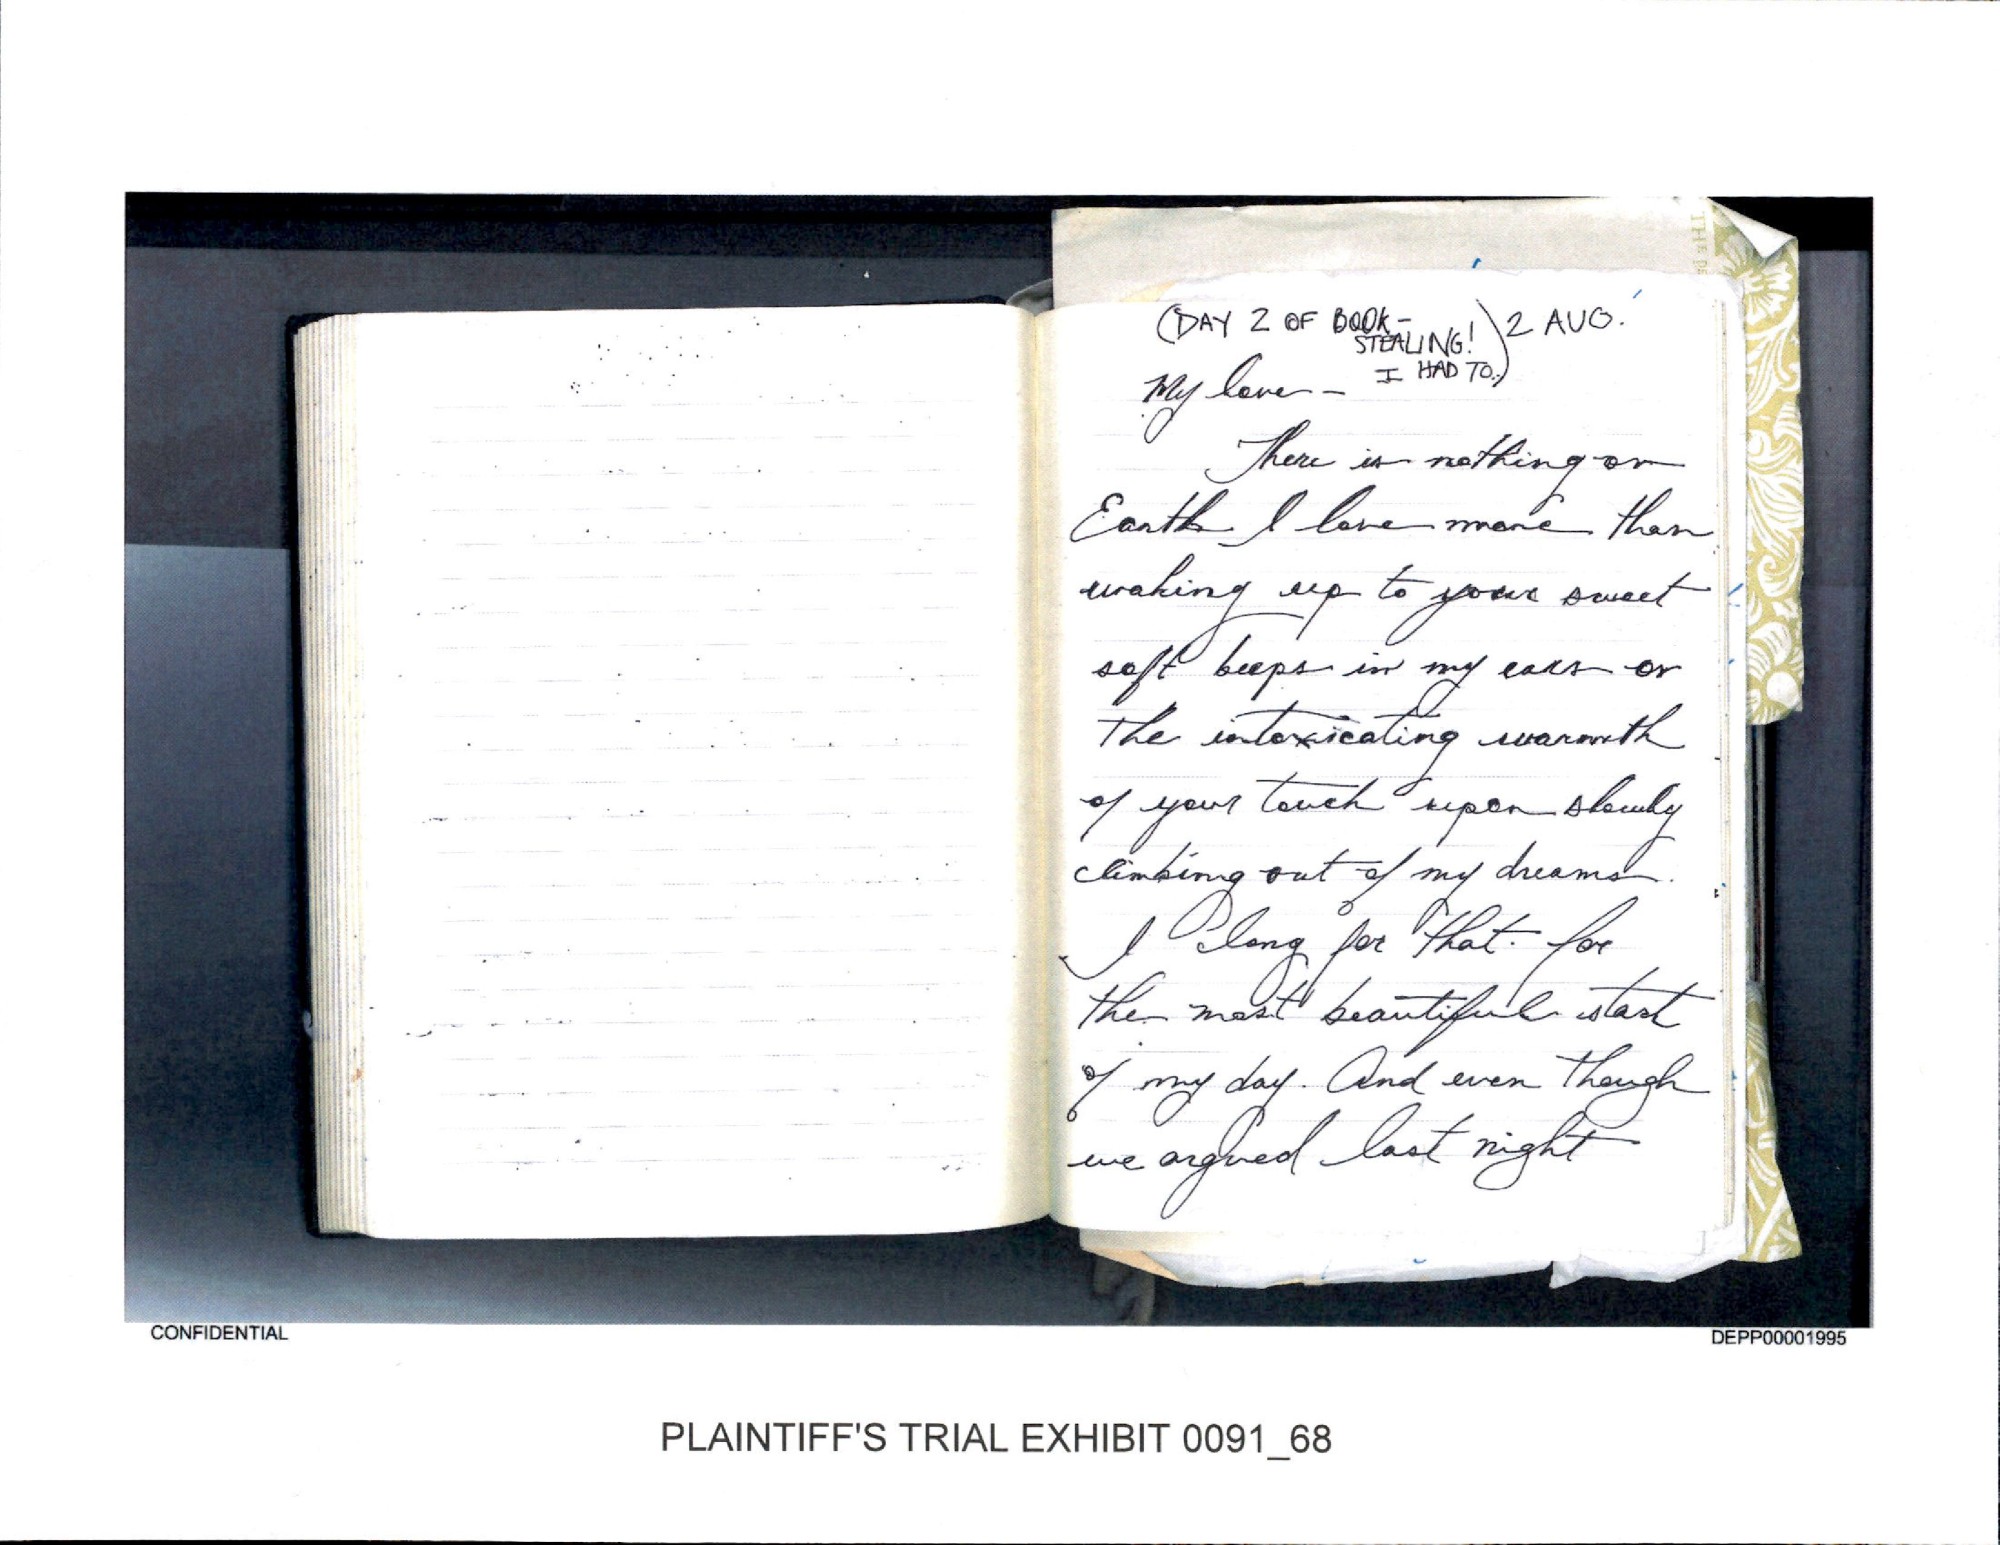 THE
(DAY 2 OF BOOK-
STEALING!
I HAD TO.)
2 AUG.
My love -
There is nothing on
Earth I love more than
waking up to your sweet
soft beeps in my ears or
the intoxicating warmth
of your touch upon slowly
climbing out of my dreams.
I long for that. for
the most beautiful start
of my day. And even though
we argued last night
CONFIDENTIAL
DEPP00001995
PLAINTIFF'S TRIAL EXHIBIT 0091_68